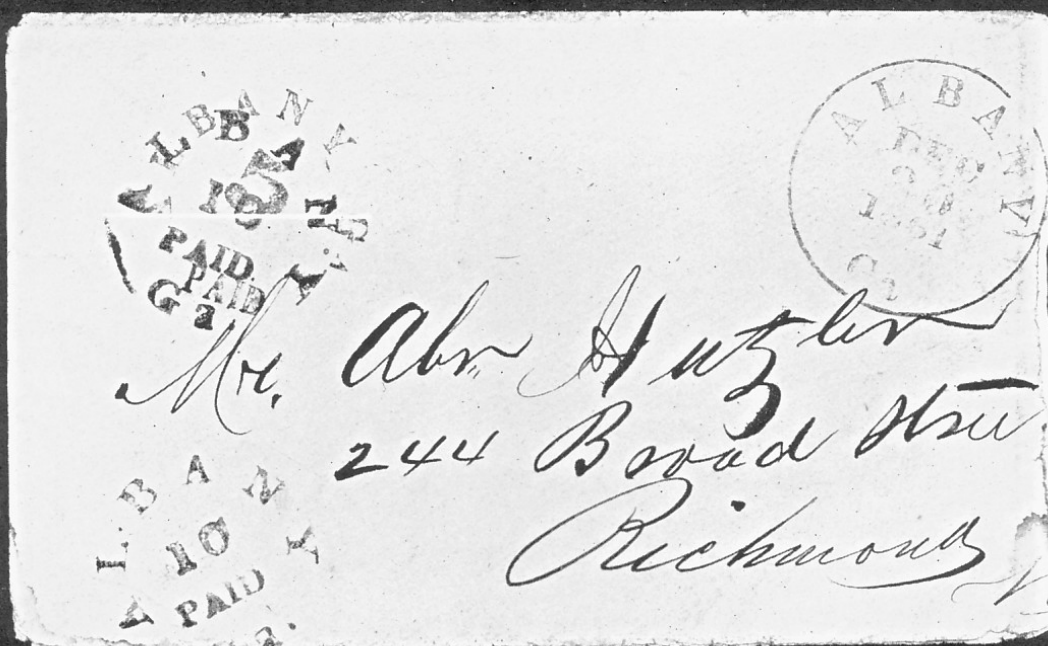 ALBANY
10
PAID
Ga
ALBANY
DEC
Ga
Mr. Abm Hutzler
244 Broad Stree
Richmond
ALBANY
10
PAID